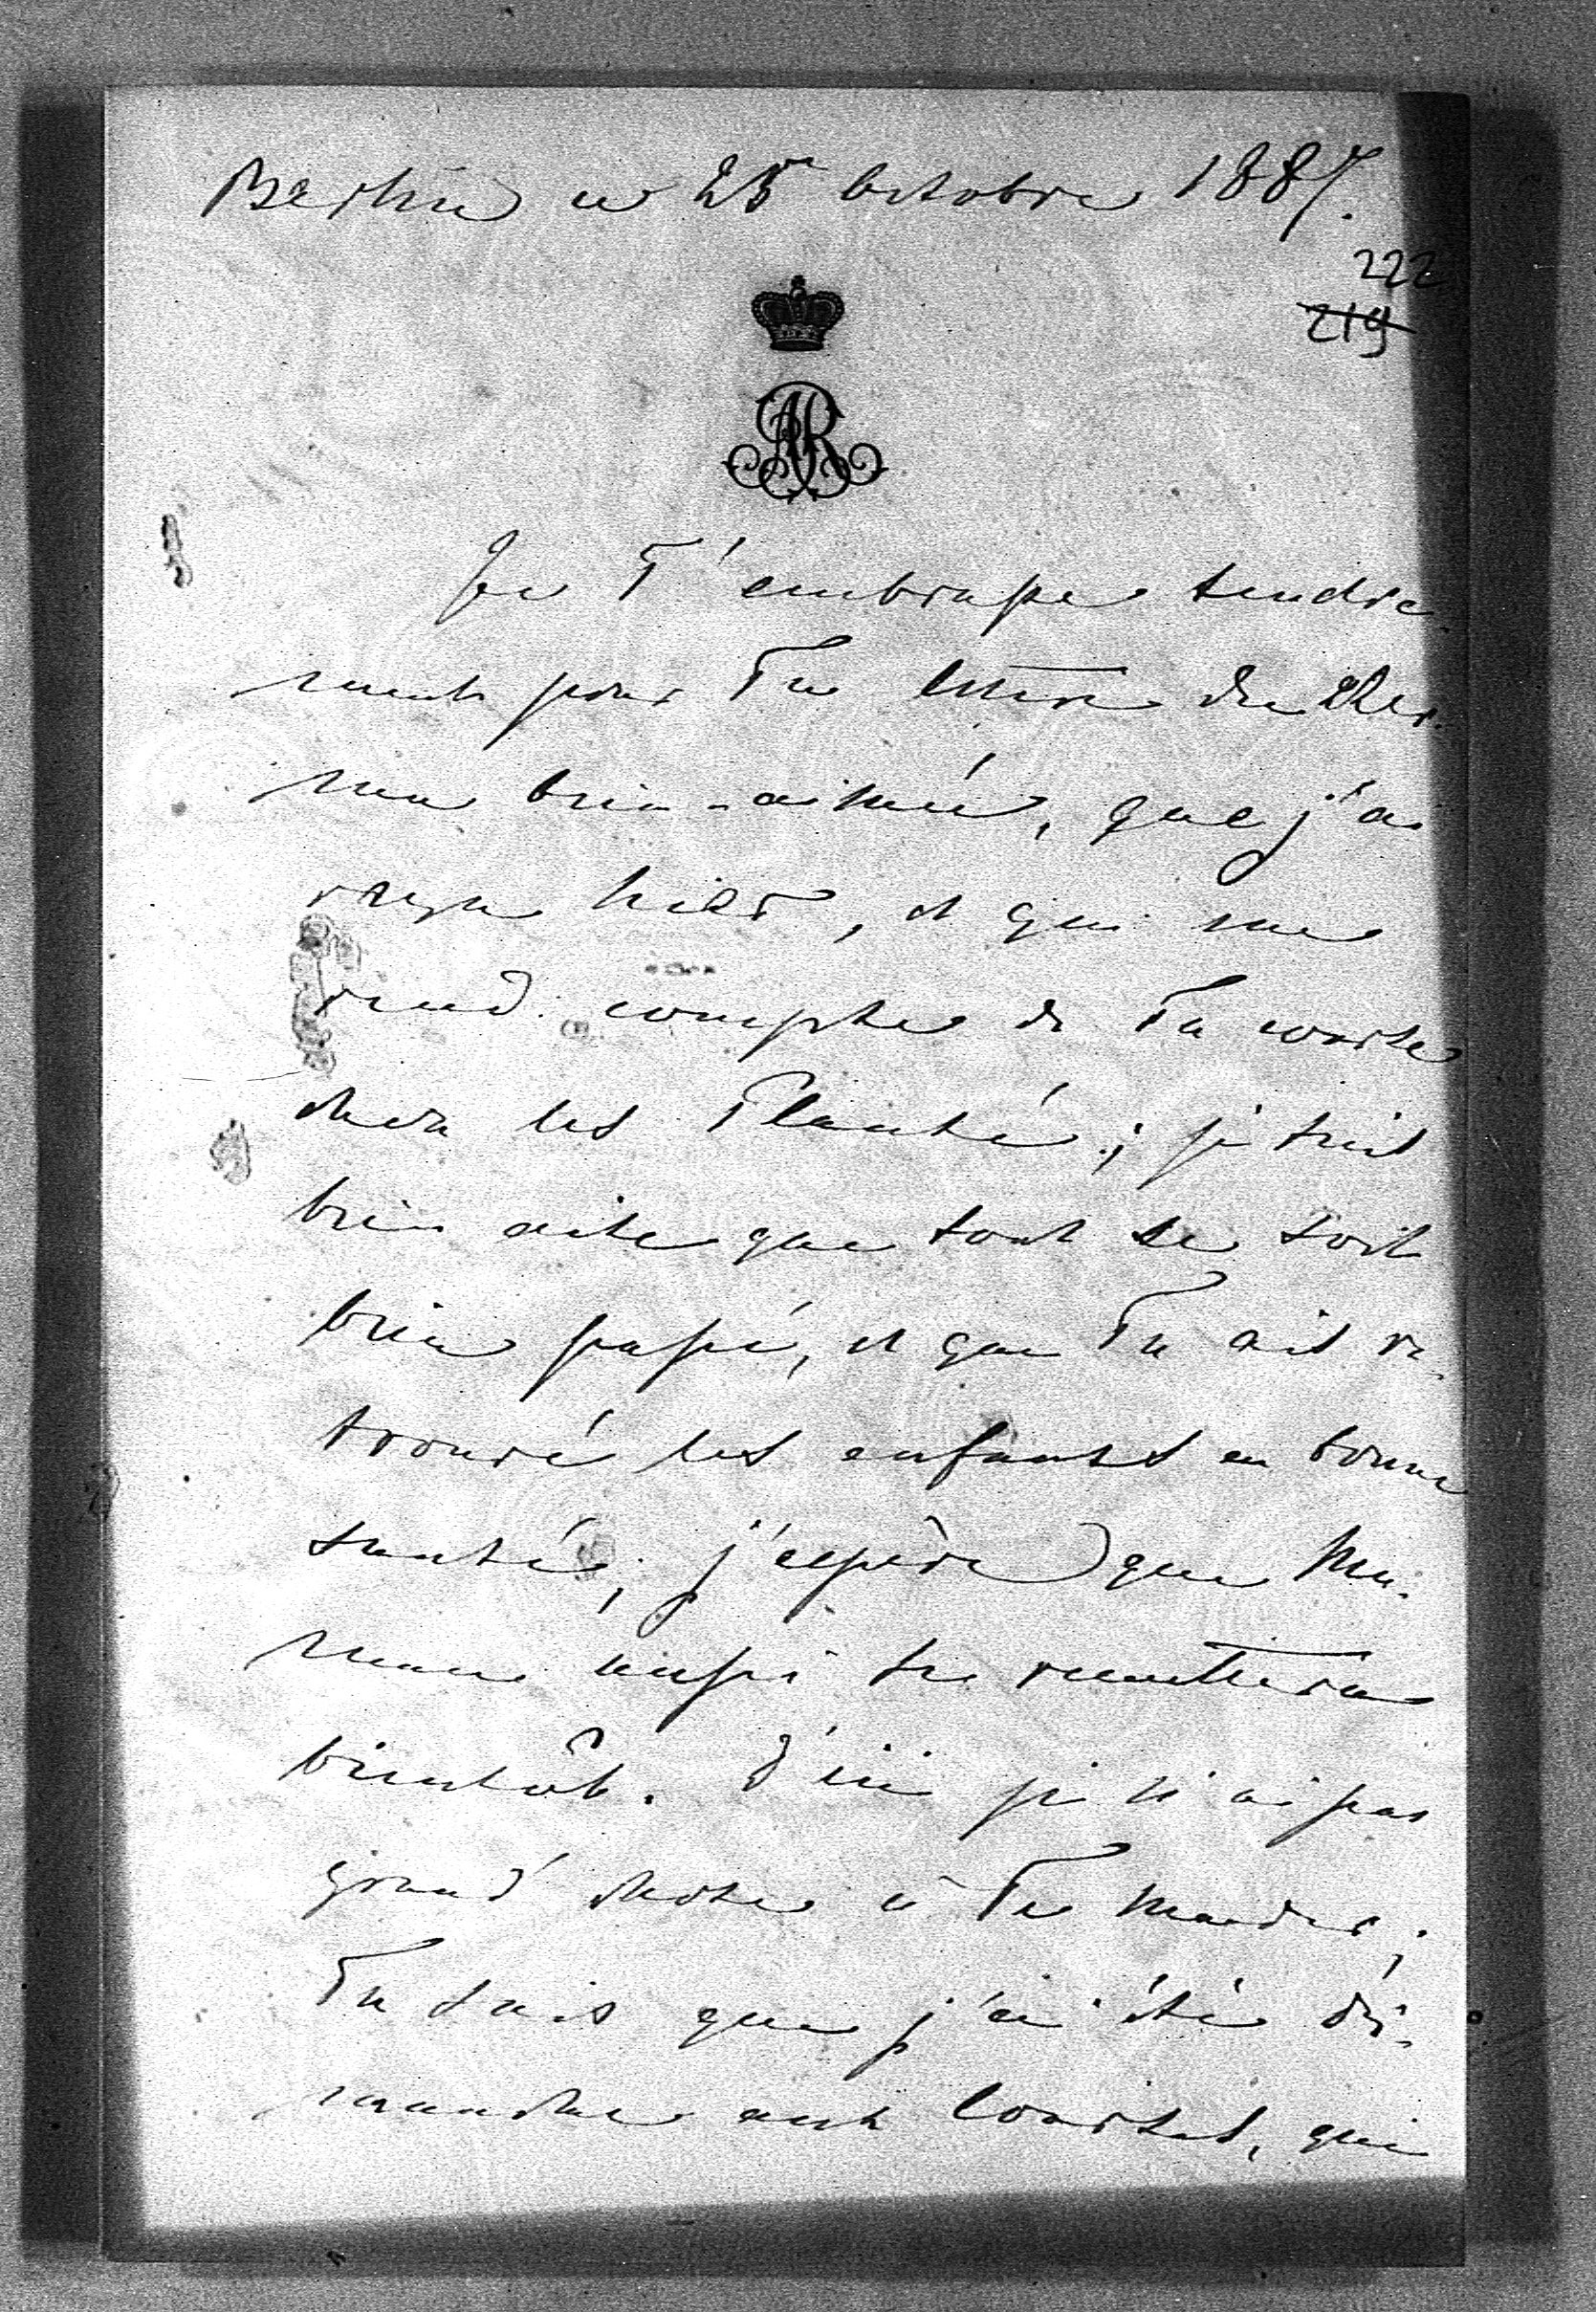 Berlin ce 25 Octobre 1887.
222
219
AR
Je T'embrasse tendre-
ment pour Ta lettre du
mon bien-aimé, que j'ai
reçue hier, et qui me
rend compte de Ta
chez les Planté; je suis
bien aise que tout se soit
bien passé, et que Tu ais re-
trouvé les enfants en bonne
santé, j'espère que Ma-
mane aussi se remettra
bientôt. D'ici je n'ai pas
grand' chose à Te mander;
Tu sais que j'ai été di-
manche aux courses, qui